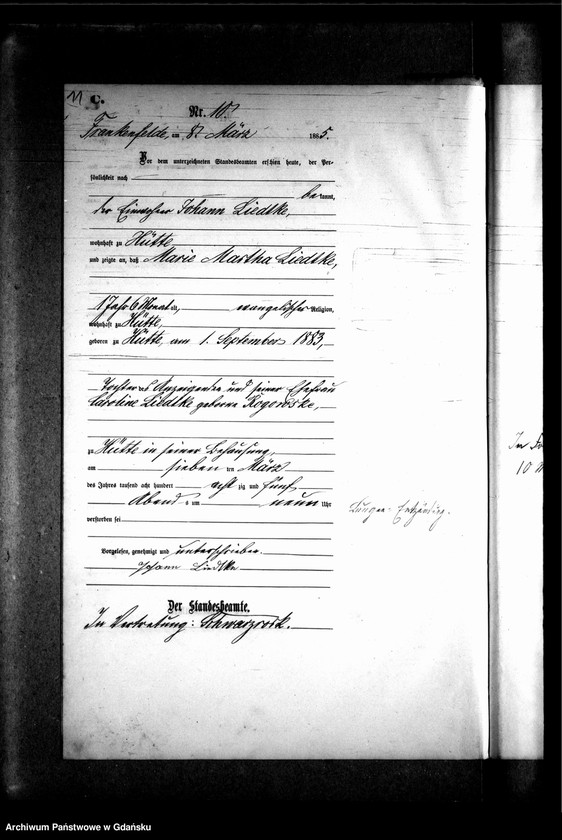 11 C.
Nr. 10.
Frankenfelde, am 8. März 1885.
Vor dem unterzeichneten Standesbeamten erschien heute, der Per-
sönlichkeit nach
bekannt,
der Einwohner Johann Liedtke,
wohnhaft zu Hütte
und zeigte an, daß Marie Martha Liedtke,
1 Jahr 6 Monat alt, evangelischer Religion,
wohnhaft zu Hütte,
geboren zu Hütte, am 1. September 1883,
Tochter des Anzeigenden und seiner Ehefrau
Caroline Liedtke geborene
zu Hütte in seiner Behausung,
am sieben ten März
des Jahres tausend acht hundert acht zig und fünf
Abends um neun Uhr
verstorben sei
Vorgelesen, genehmigt und unterschrieben
Johann Liedtke
Der Standesbeamte.
In Vertretung: Schwarzrock.
Lungen-Entzündung.
In
10
Archiwum Państwowe w Gdańsku